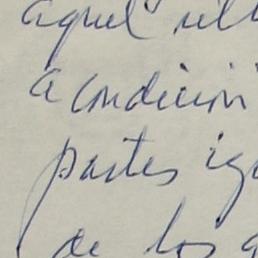 aquel
a condición
partes
de los